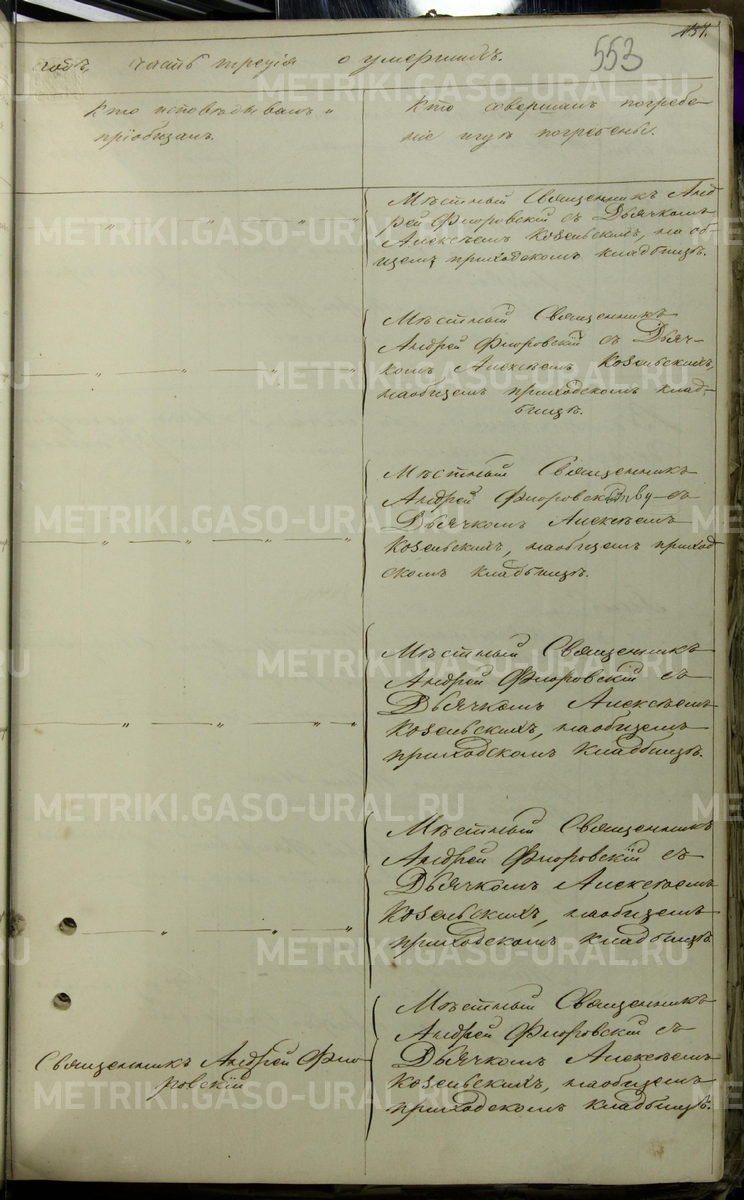 157.
553
годъ, часть третія о умершихъ.
Кто исповѣдывалъ и
пріобщалъ.
Кто совершалъ погребе-
ніе и гдѣ погребены.
Мѣстный Священникъ Анд
рей Флоровскій съ Дьячкомъ
Алексѣемъ Козельскихъ, на об-
щемъ приходскомъ кладбищѣ.
Мѣстный Священникъ
Андрей Флоровскій съ Дьяч-
комъ Алексѣемъ Козельскихъ,
на общемъ приходскомъ клад-
бищѣ.
Мѣстный Священникъ
Андрей Флоровскій съ
Дьячкомъ Алексѣемъ
Козельскихъ, на общемъ приход
скомъ кладбищѣ.
Мѣстный Священникъ
Андрей Флоровскій съ
Дьячкомъ Алексѣемъ
Козельскихъ, на общемъ
приходскомъ кладбищѣ.
Мѣстный Священникъ
Андрей Флоровскій съ
Дьячкомъ Алексѣемъ
Козельскихъ, на общемъ
приходскомъ кладбищѣ.
Священникъ Андрей Фло-
ровскій
Мѣстный Священникъ
Андрей Флоровскій съ
Дьячкомъ Алексѣемъ
Козельскихъ, на общемъ
приходскомъ кладбищѣ.
METRIKI.GASO-URAL.RU